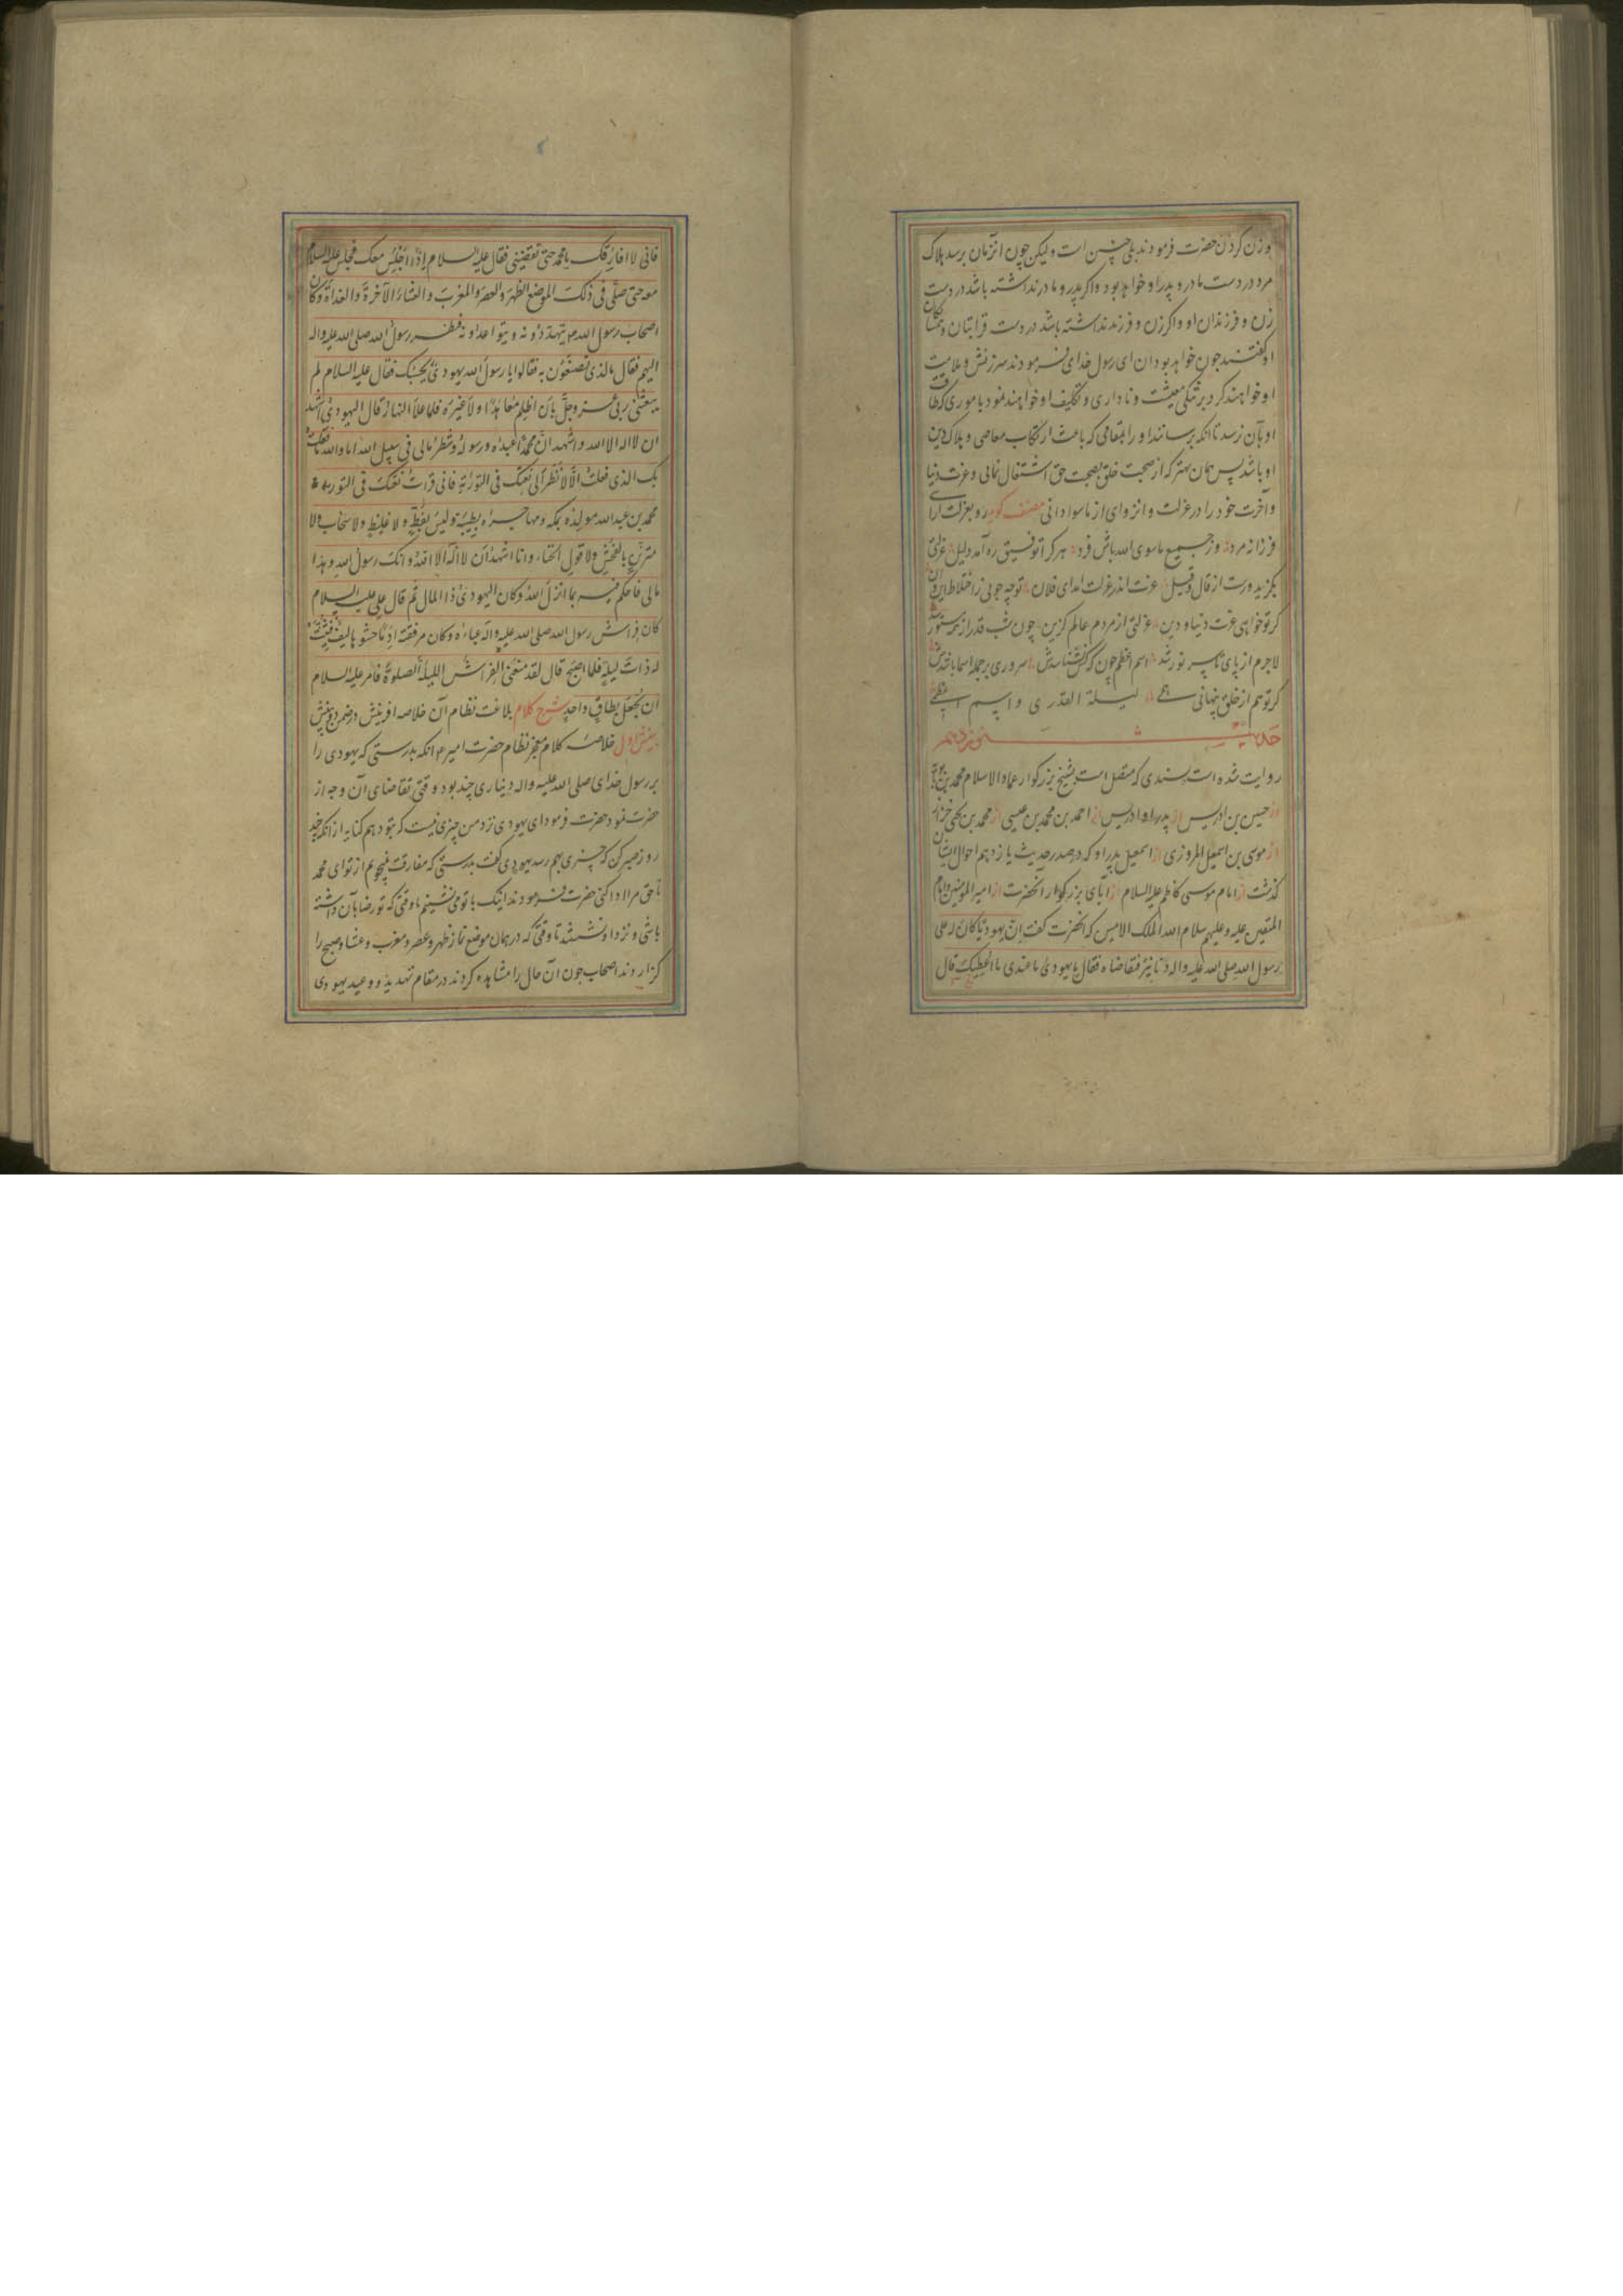 و زن کردن حضرت فرمودند بلی چنین است ولیکن چون آنزمان برسد هلاک
مرد در دست مادر و پدر او خواهد بود و اکر پدر و مادر نداشته باشد در دست
زن و فرزندان او و اکر زن و فرزند نداشته باشد در دست قرابتان و
او کفتند چون خواهد بود ان ای رسول خدای فرمودند سرزنش و ملامت
او خواهند کرد بر تنکی معیشت و ناداری و تکلیف او خواهند نمود باموری که طاقت
او بآن نرسد تا آنکه برسانند او را بمقامی که باعث ارتکاب معاصی و هلاک دین
او باشد پس همان بهتر که از صحبت خلق بصحبت حق اشتغال نمائی و عزت دنیا
و آخرت خود را در عزلت و انزوای از ماسوا دانی مصنف کوید رو بعزلت آر ای
فرزانه مرد وز جمیع ماسوی الله باش فرد هر کرا توفیق ره آمد دلیل عزلتی
بکزید ورست از قال و قیل عزت اندر عزلت آمد ای فلان تو چه جوئی ز اختلاط این و آن
کر تو خواهی عزت دنیا و دین عزلتی از مردم عالم کزین چون شب قدر از همه مستور شد
لاجرم از پای تا سر نور شد اسم اعظم چون که کس نشناسدش سروری بر جمله اسما باشدش
کر تو هم از خلق پنهانی همی لیلة القدری و اسم اعظمی
حدیث نوزدهم
روایت شده است بسندی که متصل است بشیخ بزرکوار عماد الاسلام محمد بن بابویه
از حسین بن ادریس از پدر او ادریس از احمد بن محمد بن عیسی از محمد بن یحیی خزاز
از موسی بن اسمعیل المروزی از اسمعیل پدر او که در صدر حدیث یازدهم احوال ایشان
کذشت از امام موسی کاظم علیه السلام از آبای بزرکوار آنحضرت از امیر المومنین و امام
المتقین علیه و علیهم سلام الله الملک الامین که آنحضرت کفت ان یهودیا کان له علی
رسول الله صلی الله علیه واله دنانیر فتقاضاه فقال یا یهودی ما عندی ما اعطیک قال
فانی لا افارقک یا محمد حتی تقضینی فقال علیه السلام اذا اجلس معک فجلس علیه السلام
معه حتی صلی فی ذلک الموضع الظهر والعصر والمغرب والعشاء الآخرة والغداة وکان
اصحاب رسول الله ص یتهددونه ویتواعدونه فنظر رسول الله صلی الله علیه واله
الیهم فقال ما الذی تصنعون به فقالوا یا رسول الله یهودی یحبسک فقال علیه السلام لم
یبعثنی ربی عز وجل بان اظلم معاهدا ولا غیره فلما علا النهار قال الیهودی اشهد
ان لا اله الا الله واشهد ان محمدا عبده ورسوله وشطر مالی فی سبیل الله اما والله ما فعلت
بک الذی فعلت الا لانظر الی نعتک فی التوریة فانی قرأت نعتک فی التوریة
محمد بن عبدالله مولده بمکه ومهاجره بطیبة ولیس بفظ ولا غلیظ ولا سخاب ولا
متزین بالفحش ولا قول الخنا وانا اشهد ان لا اله الا الله وانک رسول الله وهذا
مالی فاحکم فیه بما انزل الله وکان الیهودی ذا المال ثم قال علی علیه السلام
کان فراش رسول الله صلی الله علیه واله عباءه وکان مرفقته ادما حشوها لیف فثنیت
له ذات لیلة فلما اصبح قال لقد منعنی الفراش اللیلة الصلوة فامر علیه السلام
ان یجعل بطاق واحد شرح کلام بلاغت نظام آن خلاصه افرینش در ضمن دو بینش
بینش اول خلاصه کلام معجز نظام حضرت امیر ع آنکه بدرستی که یهودی را
بر رسول خدای صلی الله علیه واله دیناری چند بود وقتی تقاضای آن وجه از
حضرت نمود حضرت فرمود ای یهودی نزد من چیزی نیست که بتو دهم کنایه از آنکه چند
روز صبر کن که چیزی بهم رسد یهودی کفت بدرستی که مفارقت نمیجویم از تو ای محمد
تا حق مرا ادا کنی حضرت فرمودند اینک با تو می نشینم تا وقتی که تو رضا بآن داشته
باشی و نزد او نشستند تا وقتی که در همان موضع نماز ظهر و عصر و مغرب و عشا و صبح را
کزاردند اصحاب چون آن حال را مشاهده کردند در مقام تهدید و وعید یهودی